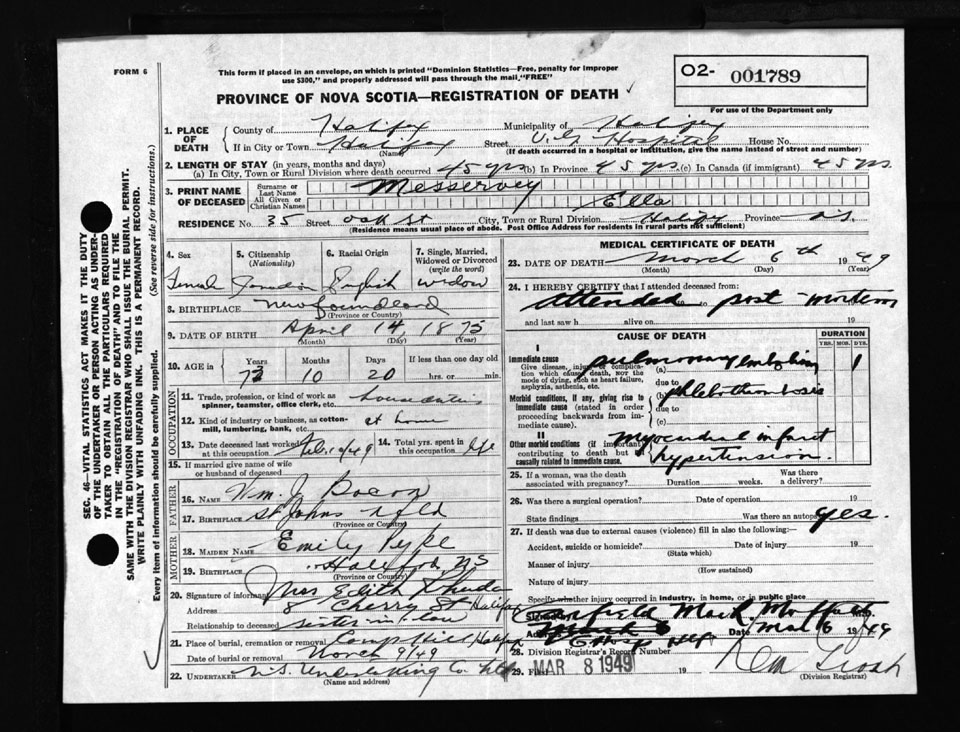 FORM 6
This form if placed in an envelope, on which is printed "Dominion Statistics—Free, penalty for improper
use $300," and properly addressed will pass through the mail "FREE"
PROVINCE OF NOVA SCOTIA—REGISTRATION OF DEATH
O2- 001789
For use of the Department only
1. PLACE OF DEATH
County of Halifax Municipality of Halifax
If in City or Town Halifax Street V.G. Hospital House No.
(Name) (If death occurred in a hospital or institution, give the name instead of street and number)
2. LENGTH OF STAY (in years, months and days)
(a) In City, Town or Rural Division where death occurred 45 yrs (b) In Province 45 yrs. (c) In Canada (if immigrant) 45 yrs
3. PRINT NAME OF DECEASED
Surname or Last Name Messervey
All Given or Christian Names Ella
RESIDENCE No. 35 Street Oak St City, Town or Rural Division Halifax Province N.S.
(Residence means usual place of abode. Post Office Address for residents in rural parts not sufficient)
SEC. 46—VITAL STATISTICS ACT MAKES IT THE DUTY
OF THE UNDERTAKER OR PERSON ACTING AS UNDER-
TAKER TO OBTAIN ALL THE PARTICULARS REQUIRED
IN THE "REGISTRATION OF DEATH" AND TO FILE THE
SAME WITH THE DIVISION REGISTRAR WHO SHALL ISSUE THE BURIAL PERMIT.
WRITE PLAINLY WITH UNFADING INK. THIS IS A PERMANENT RECORD.
Every item of information should be carefully supplied. (See reverse side for instructions.)
4. Sex 5. Citizenship (Nationality) 6. Racial Origin 7. Single, Married, Widowed or Divorced (write the word)
Female Canadian English widow
8. BIRTHPLACE Newfoundland
(Province or Country)
9. DATE OF BIRTH April 14, 1875
(Month) (Day) (Year)
10. AGE in Years Months Days If less than one day old
73 10 20 hrs. or min.
OCCUPATION
11. Trade, profession, or kind of work as
spinner, teamster, office clerk, etc. house duties
12. Kind of industry or business, as cotton-
mill, lumbering, bank, etc. at home
13. Date deceased last worked at this occupation Feb. 1949 14. Total yrs. spent in this occupation life
15. If married give name of wife
or husband of deceased
FATHER
16. NAME Wm. J.
17. BIRTHPLACE St Johns Nfld
(Province or Country)
MOTHER
18. MAIDEN NAME Emily
19. BIRTHPLACE Halifax NS
(Province or Country)
20. Signature of informant Mrs Edith
Address 8 Cherry St Halifax
Relationship to deceased sister in law
21. Place of burial, cremation or removal Camp Hill Halifax
Date of burial or removal March 9/49
22. UNDERTAKER N.S. Undertaking Co.
(Name and address)
MEDICAL CERTIFICATE OF DEATH
23. DATE OF DEATH March 6th 1949
(Month) (Day) (Year)
24. I HEREBY CERTIFY that I attended deceased from:
attended to post-mortem
and last saw h alive on 19
CAUSE OF DEATH DURATION
YRS. MOS. DYS.
I
Immediate cause pulmonary embolism 1
Give disease, injury or complica-
tion which caused death, not the
mode of dying, such as heart failure,
asphyxia, asthenia, etc.
(a)
due to phlebothrombosis
Morbid conditions, if any, giving rise to
immediate cause (stated in order
proceeding backwards from im-
mediate cause).
(b)
due to
(c)
II
Other morbid conditions (if important)
contributing to death but not
causally related to immediate cause.
myocardial infarct
hypertension.
25. If a woman, was the death
associated with pregnancy? Duration weeks. Was there a delivery?
26. Was there a surgical operation? Date of operation 19
State findings Was there an autopsy? yes.
27. If death was due to external causes (violence) fill in also the following:—
Accident, suicide or homicide? Date of injury 19
(State which)
Manner of injury
(How sustained)
Nature of injury
Specify whether injury occurred in industry, in home, or in public place
Date Mar 6 1949
28. Division Registrar's Record Number
29. Filed MAR 8 1949 19
(Division Registrar)